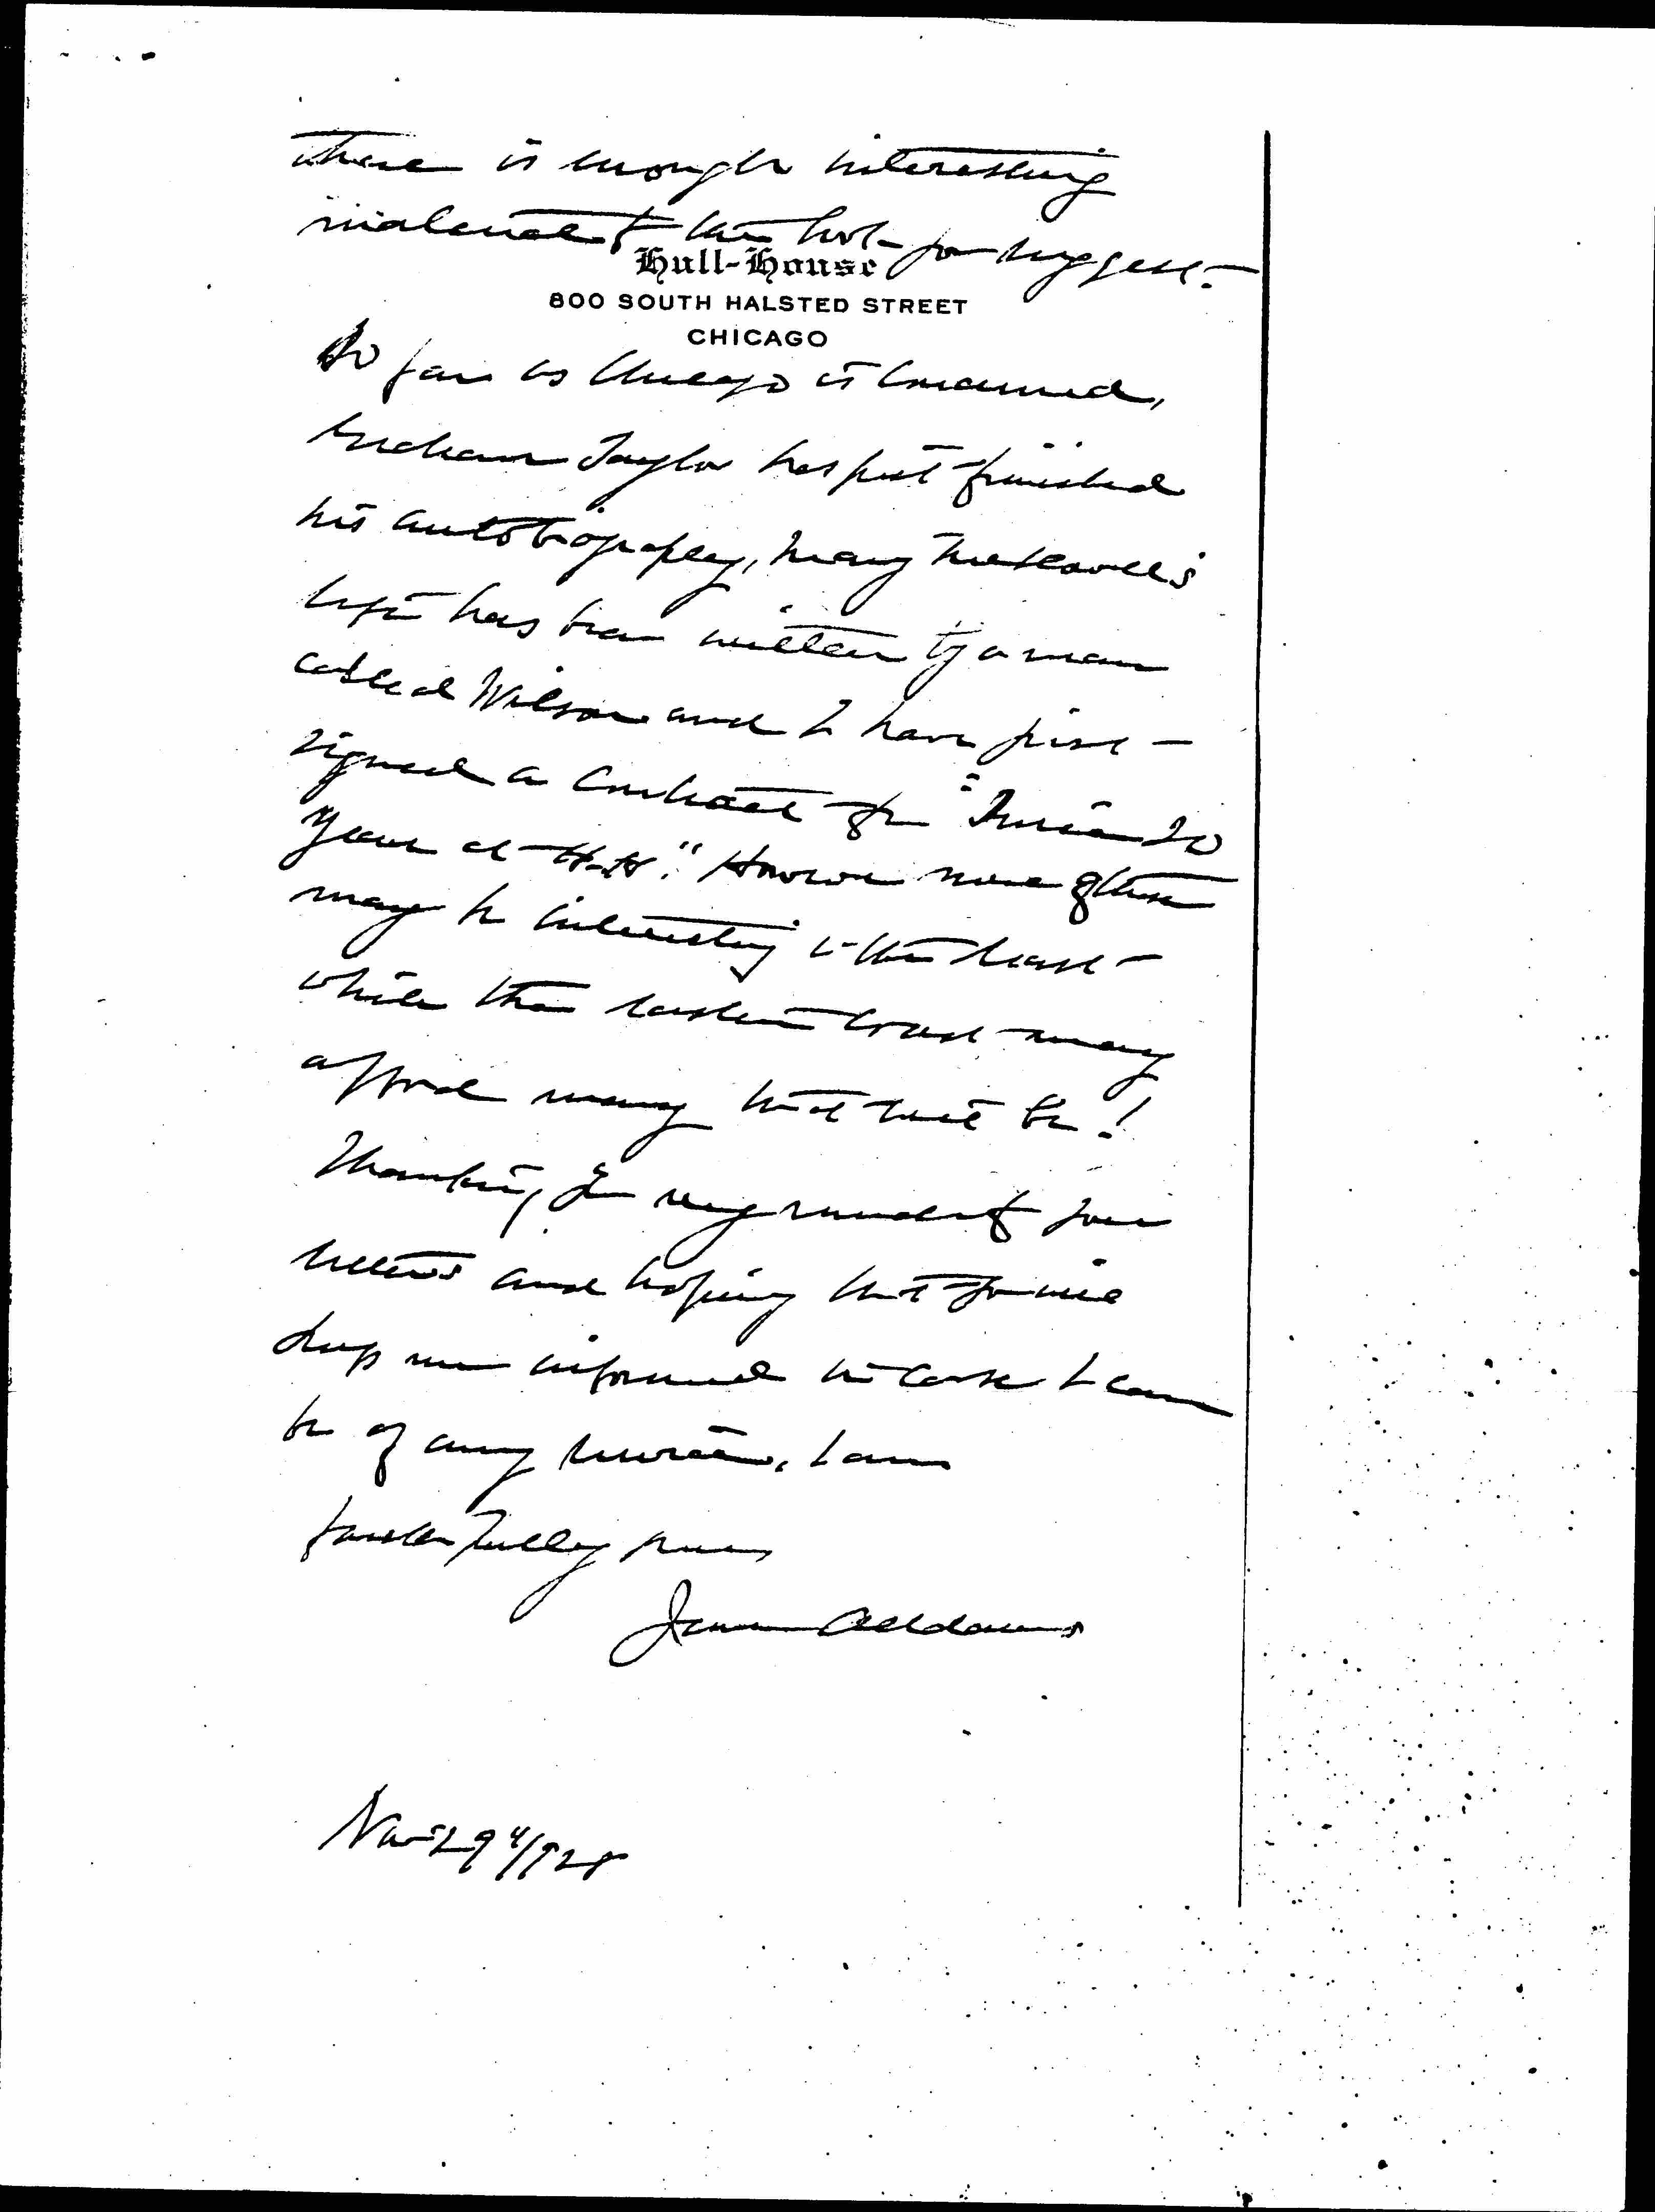 there is enough interesting
material for the book you suggest.
Hull-House
800 SOUTH HALSTED STREET
CHICAGO
So far as Chicago is concerned,
Graham Taylor has just finished
his autobiography, Mary McDowell's
life has been written by a man
called Wilson and I have just
signed a contract for "Second 20
years at H-H." However none of these
may be interesting in the least
while the eastern coast may
afford many that will be!
Thanking you very much for your
letters and hoping that you will
keep me informed in case I can
be of any service, I am
faithfully yours
Jane Addams
Nov 29" 1928